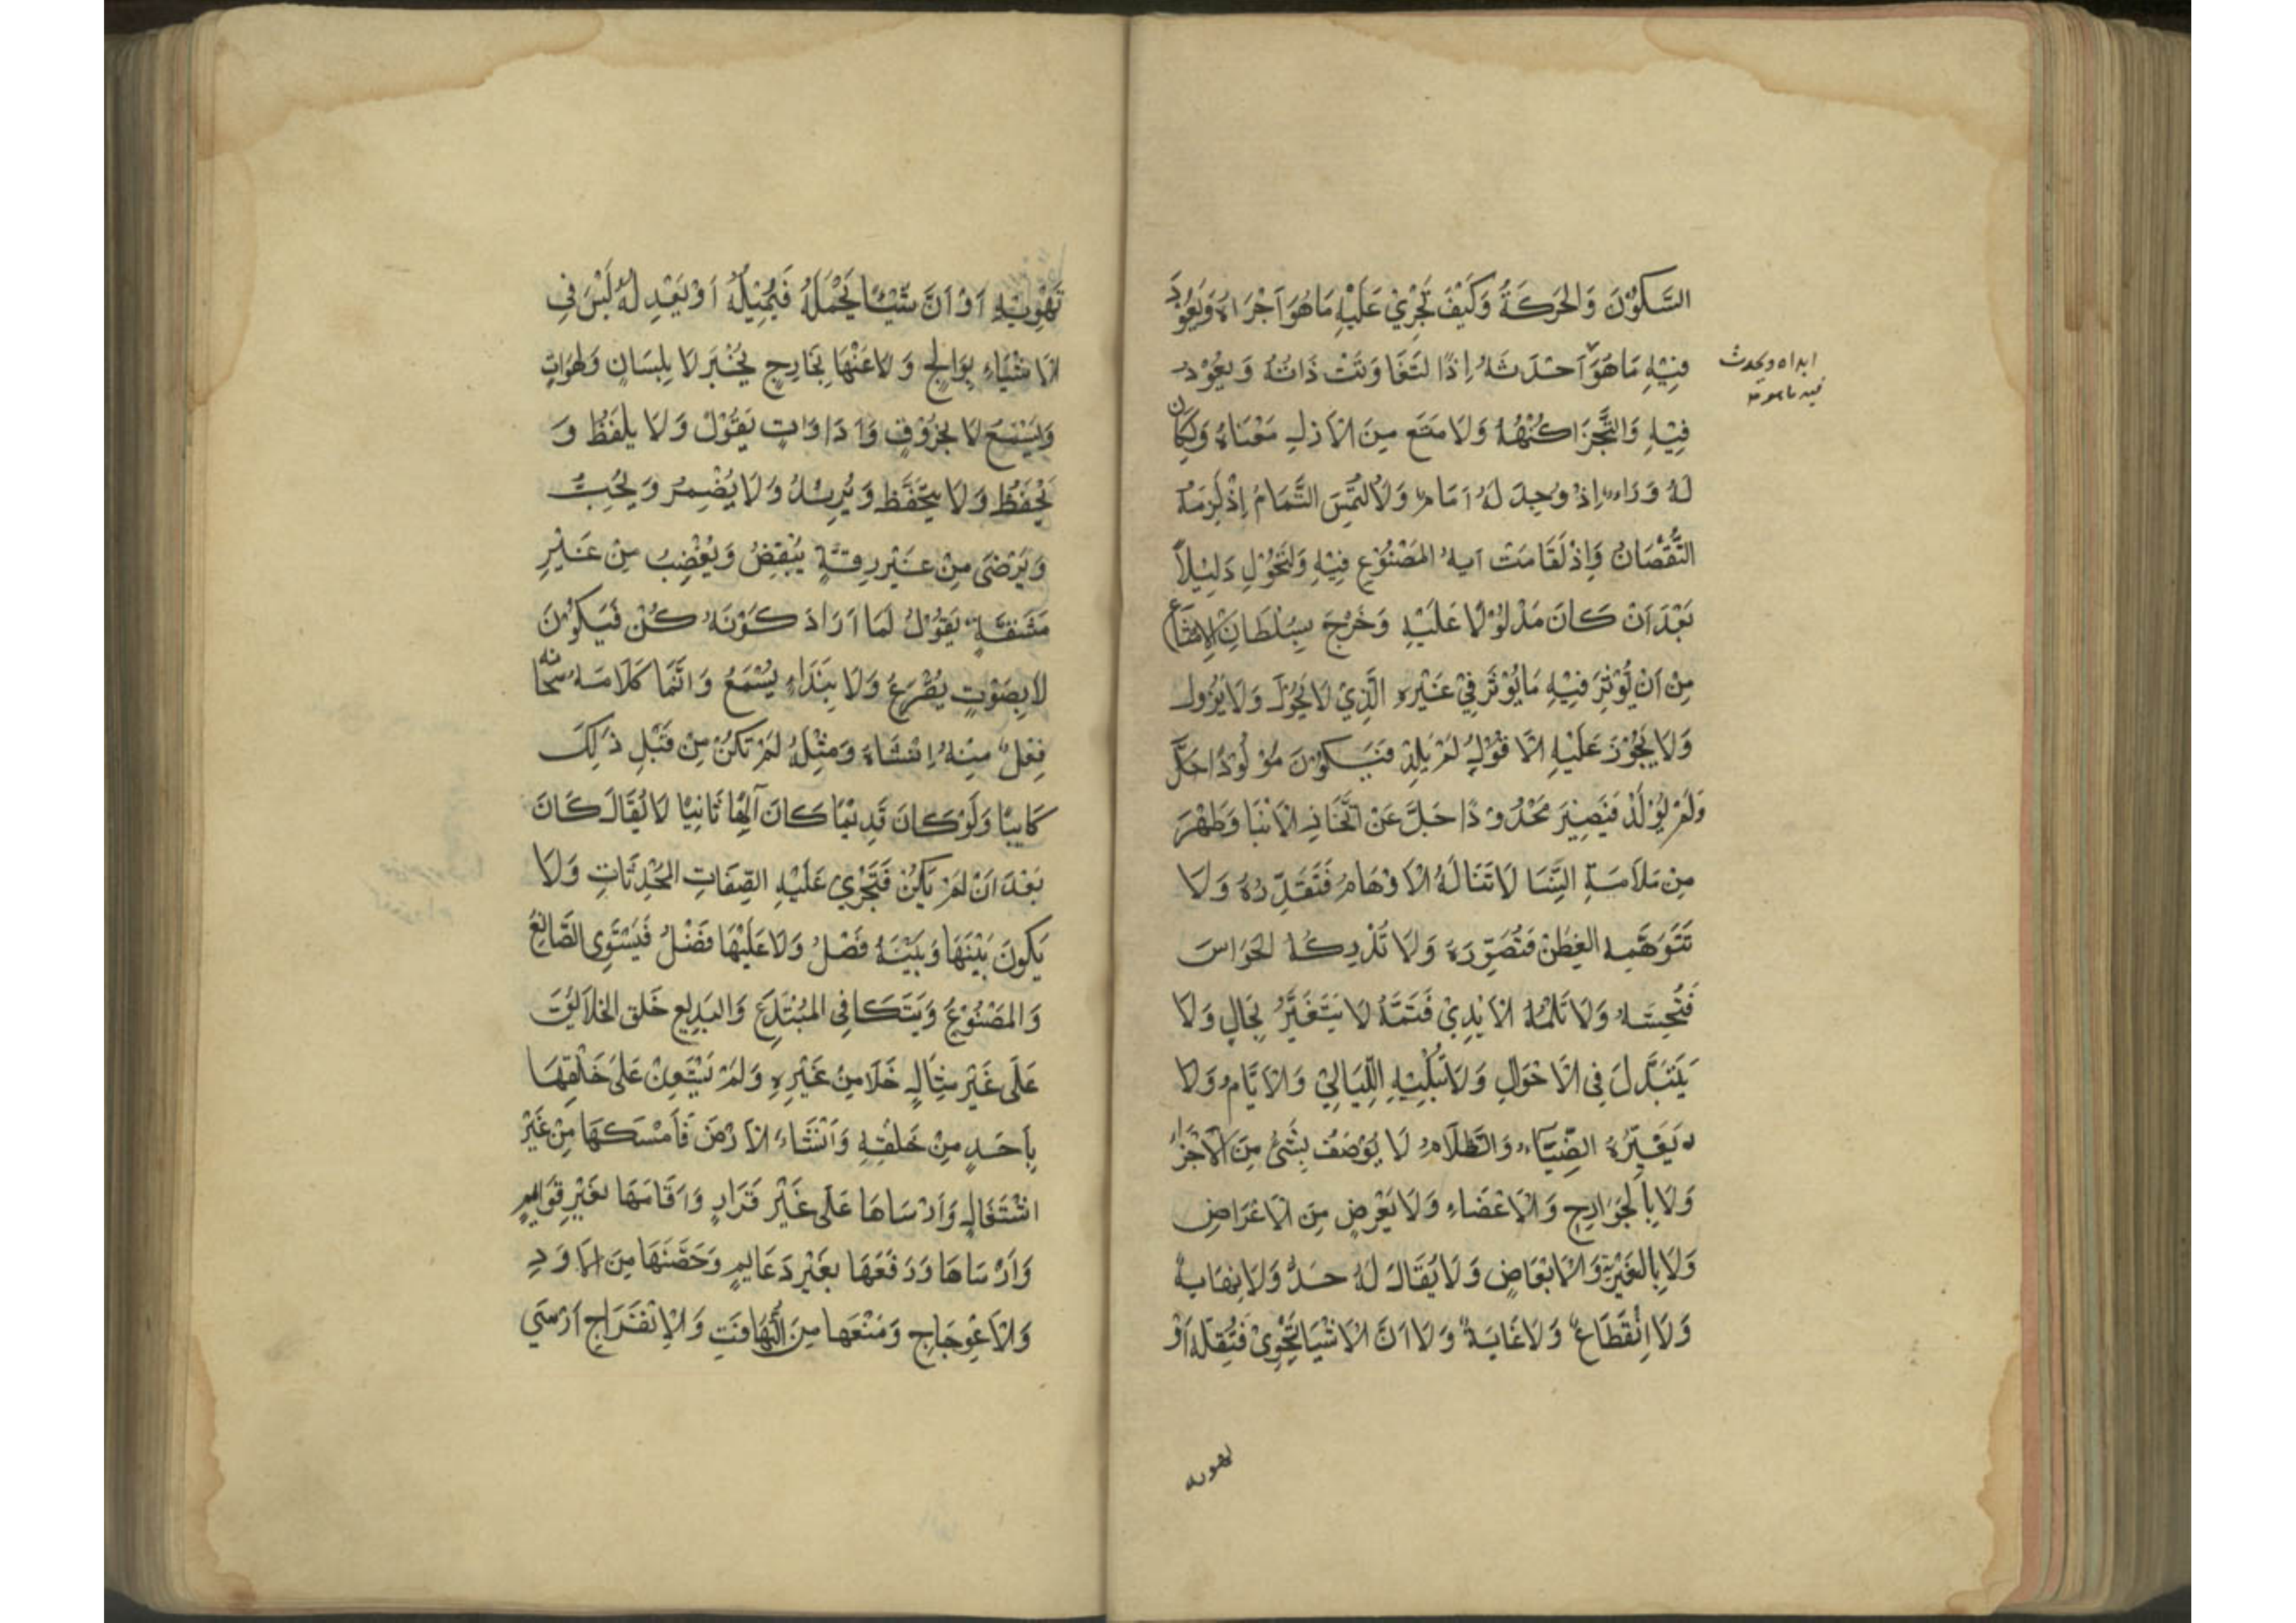 السَّكُوْنَ وَالحَرَكَةُ وَكَيْفَ تَجْرِيْ عَلَيْهِ مَا هُوَ اَجْرَاهُ وَيَعُوْدَ
فِيْهِ مَا هَوَ اَحْدَثَهُ اِذًا لَتَفَاوَتَتْ ذَاتُهُ وَيعُوْد
ابداه ويحدث
فيه ما هو
فِيْهِ وَالتَّجَزَا كُنْهُهُ وَلَا مَتَنَع مِنَ الْاَزلِ مَعْنَاهُ وَلَكَان
لَهُ وَرَاء اِذْ وُجِدَ لَهُ اَمَام وَلَالتَمَسَ التَّمَامُ اِذْ لَزِمَهُ
النُّقْصَانُ وَاِذْ لَقَامَتْ آيهُ المَصْنُوْعِ فِيْهِ وَلَتَحَوَّلِ دَلِيْلاً
بَعْدَ اَنْ كَانَ مَدْلُوْلًا عَلَيْهِ وَخَرَجَ بِسُلْطَانِ الاِمْتنَاع
مِنْ اَنْ يُوْثِرَ فِيْهِ مَا يُوْثرَ فِيْ غَيْرِهِ الَّذِيْ لَا يَحُوْلَ وَلَا يَزُول
وَلَا يَجُوْزَ عَلَيْهِ الْاُفُوْلِ لَمْ يَلِدْ فَيَكُوْنَ مَوْلُوْدًا جَلَّ
وَلَمْ يُوْلَدْ فَيَصِيْرَ مَحْدُوْدًا جَلَّ عَنْ اتَّخَاذِ الْاَبْنَا وَطَهُرَ
مِنْ مَلَامَسَةِ النِّسَا لَا تَنَالَهُ الْاَوْهَامُ فَتَقَدِّرُهُ وَلَا
تَتَوَهَّمهِ الفِطَنْ فَتُصَوِّرَهَ وَلَا تُدْرِكُهُ الحَوَاسَ
فَتُحِسَّهُ وَلَا تَلْمسُهُ الْاَيْدِيْ فَتَمَسَّهُ لَا يَتَغَيَّرُ بِحَالٍ وَلَا
يَتَبَدَّلَ فِي الْاَحْوَالِ وَلَا تُبْلِيْهِ اللَّيَالِيْ وَالْاَيَّامُ وَلَا
يُغَيِّرُهُ الضِّيَاء وَالظَّلَامُ لَا يُوْصَفُ بِشَئٍ مِنَ الْاَجْزَاء
وَلَا بِالجَوَارِحِ وَالْاَعْضَاءِ وَلَا بَعْرِضٍ مِنَ الْاَعْرَاضِ
وَلَا بِالغَيْرِيَّةِ وَالْاَبْعَاضِ وَلَا يُقَالَ لَهُ حَدٌّ وَلَا نِهَايةٌ
وَلَا اِنْقَطَاعٌ وَلَا غَايَةٌ وَلَا اَنَّ الْاَشْيَا تَحْوِيْ فَتُقِلّهُ اَوْ
تهويه
تَهْوِيْهِ اَوْ اَنَّ شَيْئًا يَحْمِلُهُ فَيُمِيْلُهُ اَوْ يَعْدِ لَهُ لَيْسَ فِي
الْاَشْيَاءِ بِوَالِجٍ وَلَا عَنْهَا بِخَارِجٍ يُخْبَر لَا بِلِسَانٍ وَلهَوَاتٍ
وَيَسْمَعَ لَا بِخُرُوْقٍ وَاَدَاوَاتٍ يَقُوْلُ وَلَا يلْفَظُ وَ
يَحْفَظُ وَلَا يَتَحَفَّظ وَيُرِيْدُ وَلَا يُضْمِرُ وَيُحِبُّ
وَيَرْضَى مِنْ غَيْرِ رِقَّةٍ يُبْغِضُ وَيُغْضِبُ مِنْ غَيْرِ
مَشَقَّةٍ يَقُوْلُ لَمَا اَرَادَ كَوْنَهُ كُنْ فَيَكُوْنَ
لَا بِصَوْتٍ يَقْرَعُ وَلَا بِنِدَاءٍ يُسْمَعُ وَاِنَّمَا كَلَامَهُ سُبْحَانه
فِعْلٌ مِنْهُ اِنْشَاهَ وَمَثْلِهُ لَمْ تَكنْ مِنْ قَبْلِ ذَلِكَ
كَايِنًا وَلَوْ كَانَ قَدِيْمًا كَانَ آلِهًا ثَانِيًا لَا يُقَالَ كَانَ
بَعْدَ اَنْ لَمْ يَكُنْ فَتَجْرِيْ عَلَيْهِ الصِّفَاتِ المُحْدِثَاتِ وَلَا
يَكُونَ بَيْنَهَا وَبَيْنَهُ فَصْلُ وَلَا عَلَيْهَا فَضْلُ فَيَسْتَوِى الصَّانِعُ
وَالمَصْنُوْعُ وَيَتَكَافِى المُبْتَدَعِ وَالبَدِيْعِ خَلق الخَلَايُقَ
عَلَى غَيْرِ مِثَالٍ خَلَا مِنْ غَيْرِهِ وَلَمْ يَسْتَعِنْ عَلَى خَلْقِهَا
بِاَحَدٍ مِنْ خَلْقِهِ وَاَنْشَاء الْاَرْضَ فَاَمْسَكَهَا مِنْ غَيْرِ
اشْتَغَالٍ وَاَرْسَاهَا عَلَى غَيْرِ قَرَارٍ وَاَقَامَهَا بغَيْرِ قَوَايِمٍ
وَاَرْسَاهَا وَرَفَعَهَا بِغَيْرِ دَعَايِمٍ وَحَصَّنَهَا مِنَ الْاَوَدِ
وَالْاَعْوِجَاجِ وَمَنَعَهَا مِنَ التَّهَافتِ وَالْاِنْفَرَاجِ اَرْسَى